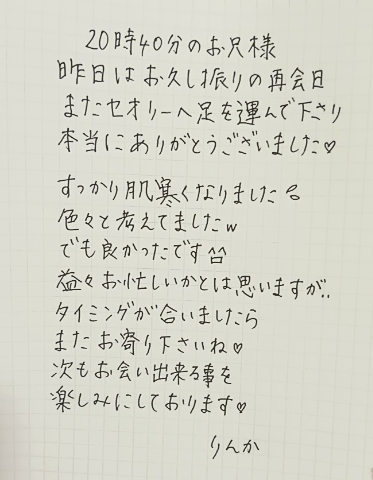 20時40分のお兄様
昨日はお久し振りの再会日
またセオリーへ足を運んで下さり
本当にありがとうございました♡
すっかり肌寒くなりました
色々と考えてましたw
でも良かったです^^
益々お忙しいかとは思いますが..
タイミングが合いましたら
またお寄り下さいね♡
次もお会い出来る事を
楽しみにしております♡
りんか